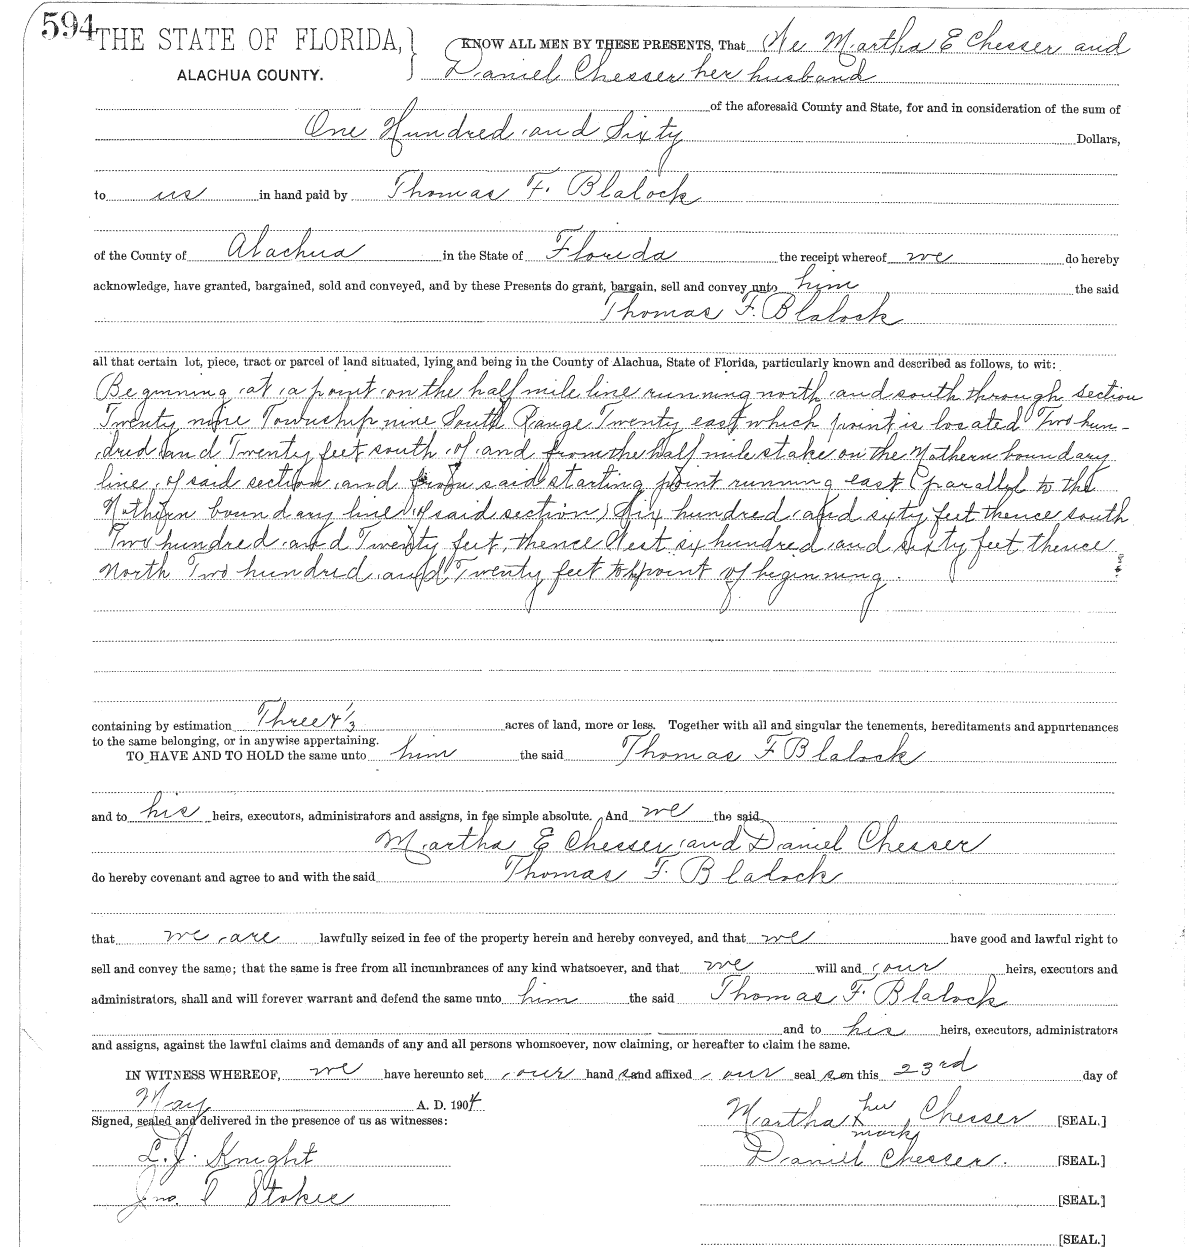 594
THE STATE OF FLORIDA,
ALACHUA COUNTY.
KNOW ALL MEN BY THESE PRESENTS, That We Martha E Chesser and
Daniel Chesser her husband
of the aforesaid County and State, for and in consideration of the sum of
One Hundred and Sixty Dollars,
to us in hand paid by Thomas F. Blalock
of the County of Alachua in the State of Florida the receipt whereof we do hereby
acknowledge, have granted, bargained, sold and conveyed, and by these Presents do grant, bargain, sell and convey unto him the said
Thomas F. Blalock
all that certain lot, piece, tract or parcel of land situated, lying and being in the County of Alachua, State of Florida, particularly known and described as follows, to wit:
Beginning at a point on the half mile line running north and south through section
Twenty nine Township nine South Range Twenty east which point is located Two hun-
dred and Twenty feet south of and from the half mile stake on the Nothern boundary
line of said section and from said starting point running east (parallel to the
Nothern boundary line of said section) Six hundred and sixty feet thence south
Two hundred and Twenty feet, thence West six hundred and sixty feet thence
North Two hundred and Twenty feet to point of beginning.
containing by estimation Three & 1/3 acres of land, more or less. Together with all and singular the tenements, hereditaments and appurtenances
to the same belonging, or in anywise appertaining.
TO HAVE AND TO HOLD the same unto him the said Thomas F Blalock
and to his heirs, executors, administrators and assigns, in fee simple absolute. And we the said
Martha E Chesser and Daniel Chesser
do hereby covenant and agree to and with the said Thomas F. Blalock
that we are lawfully seized in fee of the property herein and hereby conveyed, and that we have good and lawful right to
sell and convey the same; that the same is free from all incumbrances of any kind whatsoever, and that we will and our heirs, executors and
administrators, shall and will forever warrant and defend the same unto him the said Thomas F. Blalock
and to his heirs, executors, administrators
and assigns, against the lawful claims and demands of any and all persons whomsoever, now claiming, or hereafter to claim the same.
IN WITNESS WHEREOF, we have hereunto set our hand s and affixed our seal s on this 23rd day of
May A. D. 1904
Signed, sealed and delivered in the presence of us as witnesses:
Martha her x mark Chesser [SEAL.]
L. J. Knight
Daniel Chesser. [SEAL.]
Jno. Stokes
[SEAL.]
[SEAL.]